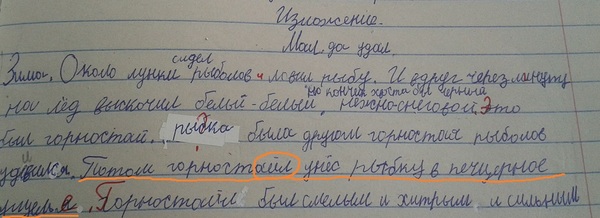 Изложение.
Мал, да удал.
Зима. Около лунки сидел рыболов и ловил рыбу. И вдруг через минуту
на лёд выскочил белый-белый, на кончик хвоста был чернила нежно-снеговой. Это
был горностай. рыбка была другом горностая рыболов
удивился. Потом горностайл унёс рыбку в пещерное
Горностайл был смелым и хитрым и сильним